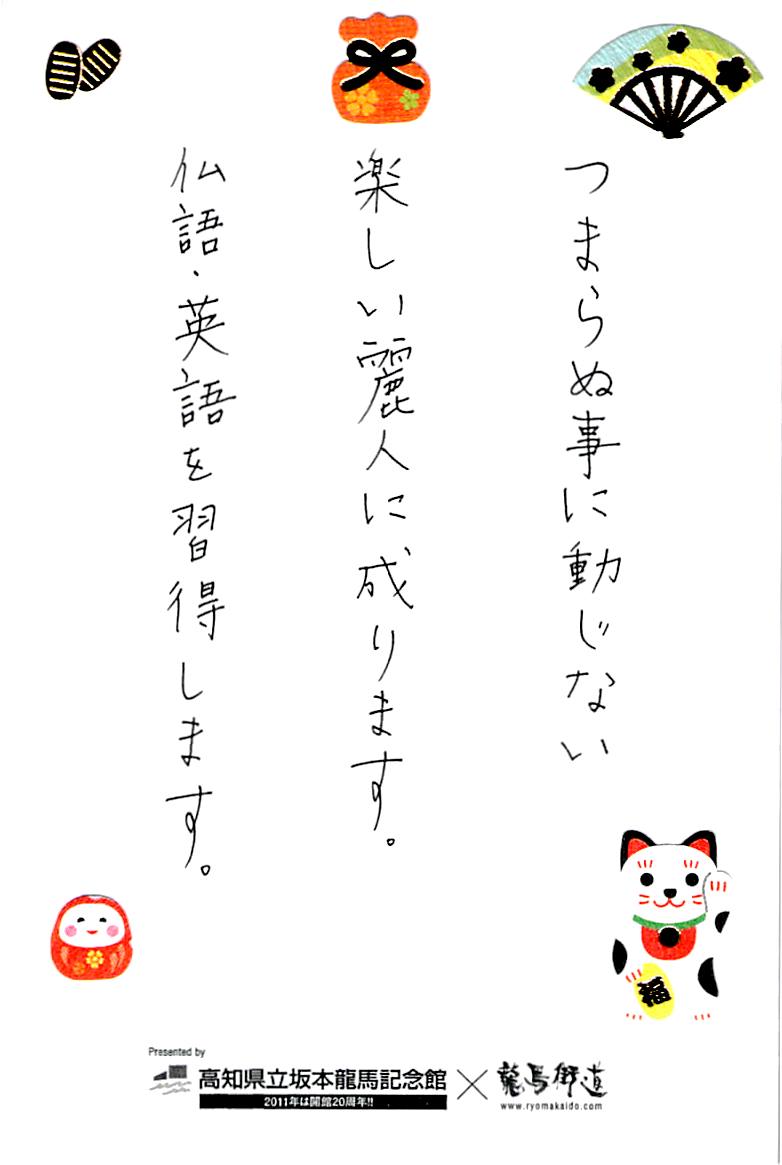 つまらぬ事に動じない
楽しい麗人に成ります。
仏語・英語を習得します。
福
Presented by
高知県立坂本龍馬記念館
2011年は開館20周年!!
×
龍馬街道
www.ryomakaido.com